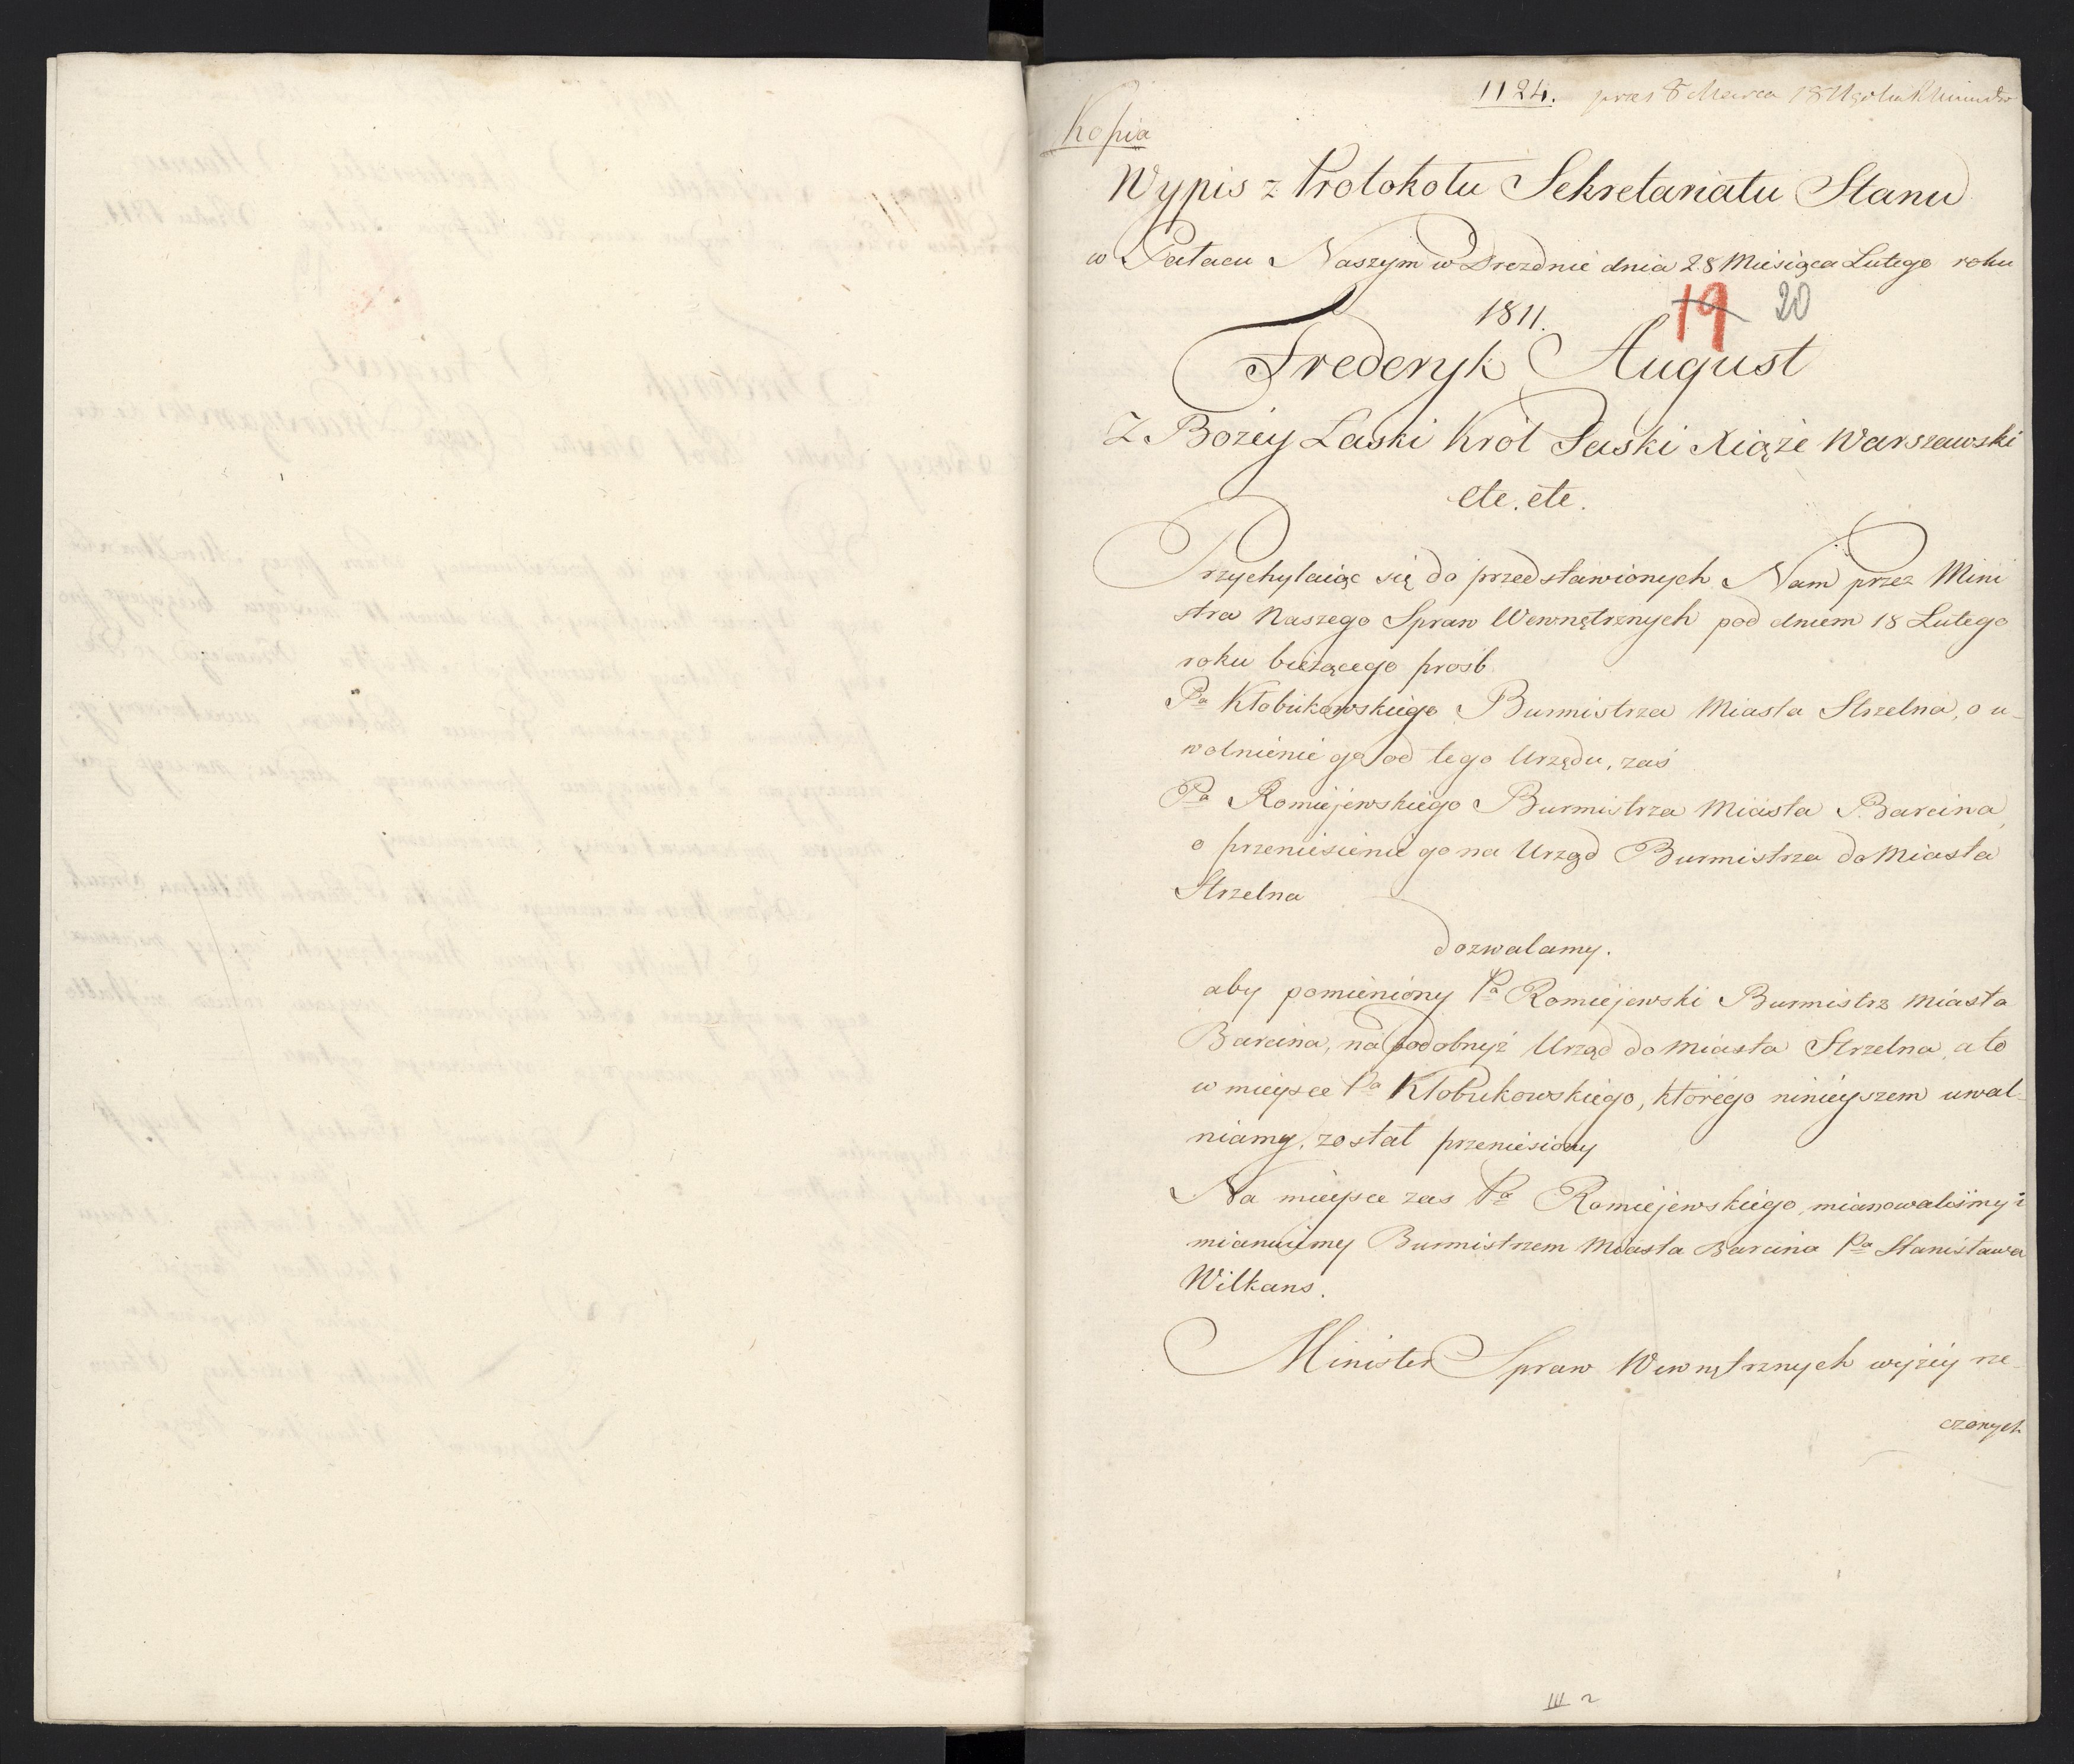 1124. 8 Marca
Kopia
Wypis z Protokołu Sekretariatu Stanu
w Pałacu Naszym w Dreznie dnia 28 Miesiąca Lutego roku
1811.
19 20
Frederyk August
Z Bożey Łaski Król Saski Xiąże Warszawski
etc. etc.
Przychylaiąc się do przedstawionych Nam przez Mini
stra Naszego Spraw Wewnętrznych pod dniem 18 Lutego
roku bieżącego prosb
Pa Kłobukowskiego Burmistrza Miasta Strzelna, o u-
wolnienie go od tego Urzędu, zaś
Pa Romiejewskiego Burmistrza Miasta Barcina,
o przeniesienie go na Urząd Burmistrza do Miasta
Strzelna
dozwalamy.
aby pomieniony Pa Romiejewski Burmistrz Miasta
Barcina, na podobnyż Urząd do Miasta Strzelna, a to
w mieysce Pa Kłobukowskiego, którego ninieyszem uwal-
niamy, został przeniesiony
Na mieysce zas Pa Romiejewskiego, mianowalismy i
mianuiemy Burmistrzem Miasta Barcina Pa Stanisława
Wilkans.
Minister Spraw Wewnętrznych wyżey rze-
czonych
III 2